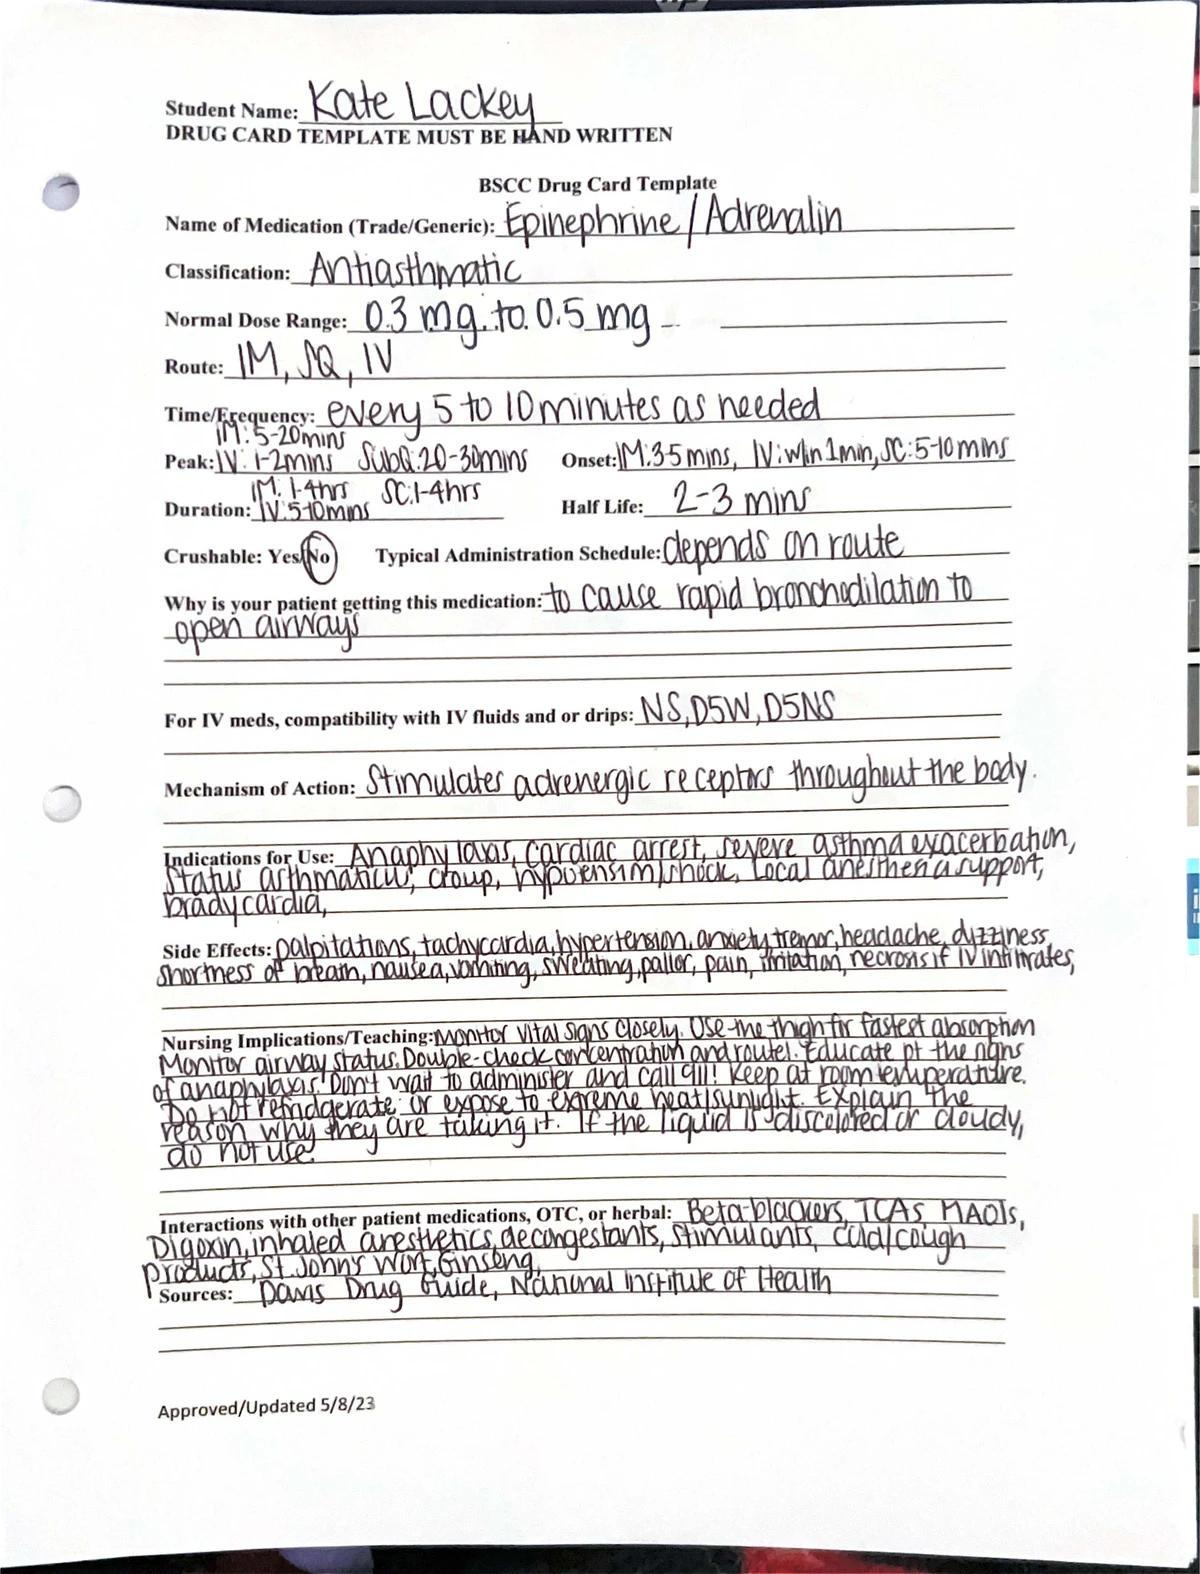 Student Name: Kate Lackey
DRUG CARD TEMPLATE MUST BE HAND WRITTEN
BSCC Drug Card Template
Name of Medication (Trade/Generic): Epinephrine/Adrenalin
Classification: Antiasthmatic
Normal Dose Range: 0.3 mg. to 0.5 mg
Route: IM, SQ, IV
Time/Frequency: every 5 to 10 minutes as needed
IM: 5-20mins
Peak: IV: 1-2mins SubQ:20-30mins Onset: IM:35mins, IV:w/in 1min, SC:5-10mins
IM: 1-4hrs SC:1-4hrs
Duration: IV:5-10mins Half Life: 2-3 mins
Crushable: Yes/No Typical Administration Schedule: depends on route
Why is your patient getting this medication: to cause rapid bronchodilation to
open airways
For IV meds, compatibility with IV fluids and or drips: NS, D5W, D5NS
Mechanism of Action: Stimulates adrenergic receptors throughout the body.
Indications for Use: Anaphylaxis, cardiac arrest, severe asthma exacerbation,
status asthmaticus, croup, hypotension/shock, Local anesthesia support,
bradycardia,
Side Effects: palpitations, tachycardia, hypertension, anxiety, tremor, headache, dizziness,
shortness of breath, nausea, vomiting, sweating, pallor, pain, irritation, necrosis if IV infiltrates,
Nursing Implications/Teaching: Monitor vital signs closely. Use the thigh for fastest absorption
Monitor airway status. Double-check concentration and route!. Educate pt the signs
of anaphylaxis! Don't wait to administer and call 911! Keep at room temperature.
Do not refridgerate or expose to extreme heat/sunlight. Explain the
reason why they are taking it. If the liquid is discolored or cloudy,
do not use.
Interactions with other patient medications, OTC, or herbal: Beta-blockers, TCAs, MAOIs,
Digoxin, inhaled anesthetics, decongestants, stimulants, cold/cough
products, St. John's Wort, Ginseng,
Sources: Davis Drug Guide, National Institute of Health
Approved/Updated 5/8/23